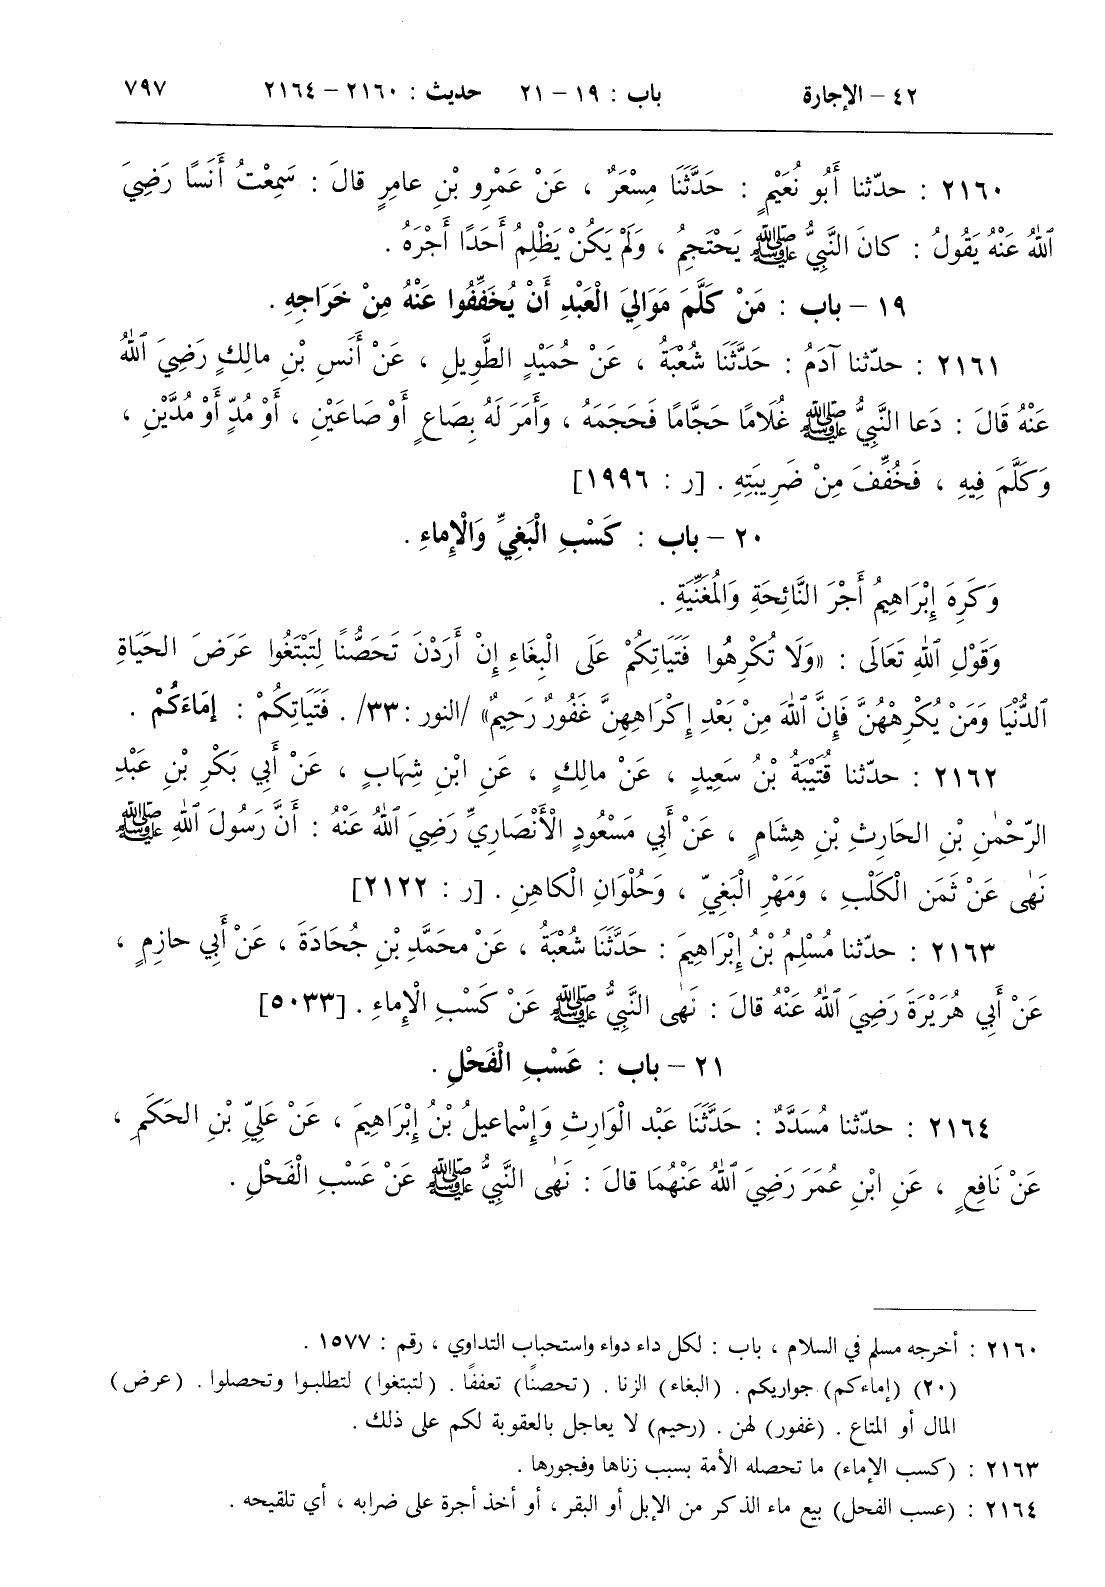 ٤٢ – الإجارة باب : ١٩ – ٢١ حديث : ٢١٦٠ – ٢١٦٤ ٧٩٧
٢١٦٠ : حدّثنا أَبُو نُعَيْمٍ : حَدَّثَنَا مِسْعَرٌ ، عَنْ عَمْرِو بْنِ عامِرٍ قالَ : سَمِعْتُ أَنَسًا رَضِيَ
ٱللّٰهُ عَنْهُ يَقُولُ : كانَ النَّبِيُّ ﷺ يَحْتَجِمُ ، وَلَمْ يَكُنْ يَظْلِمُ أَحَدًا أَجْرَهُ .
١٩ – باب : مَنْ كَلَّمَ مَوَالِيَ الْعَبْدِ أَنْ يُخَفِّفُوا عَنْهُ مِنْ خَرَاجِهِ .
٢١٦١ : حدّثنا آدَمُ : حَدَّثَنَا شُعْبَةُ ، عَنْ حُمَيْدٍ الطَّوِيلِ ، عَنْ أَنَسِ بْنِ مالِكٍ رَضِيَ ٱللّٰهُ
عَنْهُ قَالَ : دَعا النَّبِيُّ ﷺ غُلَامًا حَجَّامًا فَحَجَمَهُ ، وَأَمَرَ لَهُ بِصَاعٍ أَوْ صَاعَيْنِ ، أَوْ مُدٍّ أَوْ مُدَّيْنِ ،
وَكَلَّمَ فِيهِ ، فَخُفِّفَ مِنْ ضَرِيبَتِهِ . [ر : ١٩٩٦]
٢٠ – باب : كَسْبِ الْبَغِيِّ وَالْإِماءِ .
وَكَرِهَ إِبْرَاهِيمُ أَجْرَ النَّائِحَةِ وَالْمُغَنِّيَةِ .
وَقَوْلِ ٱللّٰهِ تَعَالَى : «وَلَا تُكْرِهُوا فَتَيَاتِكُمْ عَلَى الْبِغَاءِ إِنْ أَرَدْنَ تَحَصُّنًا لِتَبْتَغُوا عَرَضَ الحَيَاةِ
ٱلدُّنْيَا وَمَنْ يُكْرِهْهُنَّ فَإِنَّ ٱللّٰهَ مِنْ بَعْدِ إِكْرَاهِهِنَّ غَفُورٌ رَحِيمٌ» /النور : ٣٣/ . فَتَيَاتِكُمْ : إِمَاءَكُمْ .
٢١٦٢ : حدّثنا قُتَيْبَةُ بْنُ سَعِيدٍ ، عَنْ مالِكٍ ، عَنِ ابْنِ شِهَابٍ ، عَنْ أَبِي بَكْرِ بْنِ عَبْدِ
الرّحْمٰنِ بْنِ الحَارِثِ بْنِ هِشَامٍ ، عَنْ أَبِي مَسْعُودٍ الْأَنْصَارِيِّ رَضِيَ ٱللّٰهُ عَنْهُ : أَنَّ رَسُولَ ٱللّٰهِ ﷺ
نَهٰى عَنْ ثَمَنِ الْكَلْبِ ، وَمَهْرِ الْبَغِيِّ ، وَحُلْوَانِ الْكاهِنِ . [ر : ٢١٢٢]
٢١٦٣ : حدّثنا مُسْلِمُ بْنُ إِبْرَاهِيمَ : حَدَّثَنَا شُعْبَةُ ، عَنْ محَمَّدِ بْنِ جُحَادَةَ ، عَنْ أَبِي حازِمٍ ،
عَنْ أَبِي هُرَيْرَةَ رَضِيَ ٱللّٰهُ عَنْهُ قالَ : نَهٰى النَّبِيُّ ﷺ عَنْ كَسْبِ الْإِماءِ . [٥٠٣٣]
٢١ – باب : عَسْبِ الْفَحْلِ .
٢١٦٤ : حدّثنا مُسَدَّدٌ : حَدَّثَنَا عَبْد الْوَارِثِ وَإِسْماعِيلُ بْنُ إِبْرَاهِيمَ ، عَنْ عَلِيِّ بْنِ الحَكَمِ ،
عَنْ نَافِعٍ ، عَنِ ابْنِ عُمَرَ رَضِيَ ٱللّٰهُ عَنْهُمَا قالَ : نَهٰى النَّبِيُّ ﷺ عَنْ عَسْبِ الْفَحْلِ .
٢١٦٠ : أخرجه مسلم في السلام ، باب : لكل داء دواء واستحباب التداوي ، رقم : ١٥٧٧ .
(٢٠) (إماءكم) جواريكم . (البغاء) الزنا . (تحصنًا) تعففًا . (لتبتغوا) لتطلبوا وتحصلوا . (عرض)
المال أو المتاع . (غفور) لهن . (رحيم) لا يعاجل بالعقوبة لكم على ذلك .
٢١٦٣ : (كسب الإماء) ما تحصله الأمة بسبب زناها وفجورها .
٢١٦٤ : (عسب الفحل) بيع ماء الذكر من الإبل أو البقر ، أو أخذ أجرة على ضرابه ، أي تلقيحه .